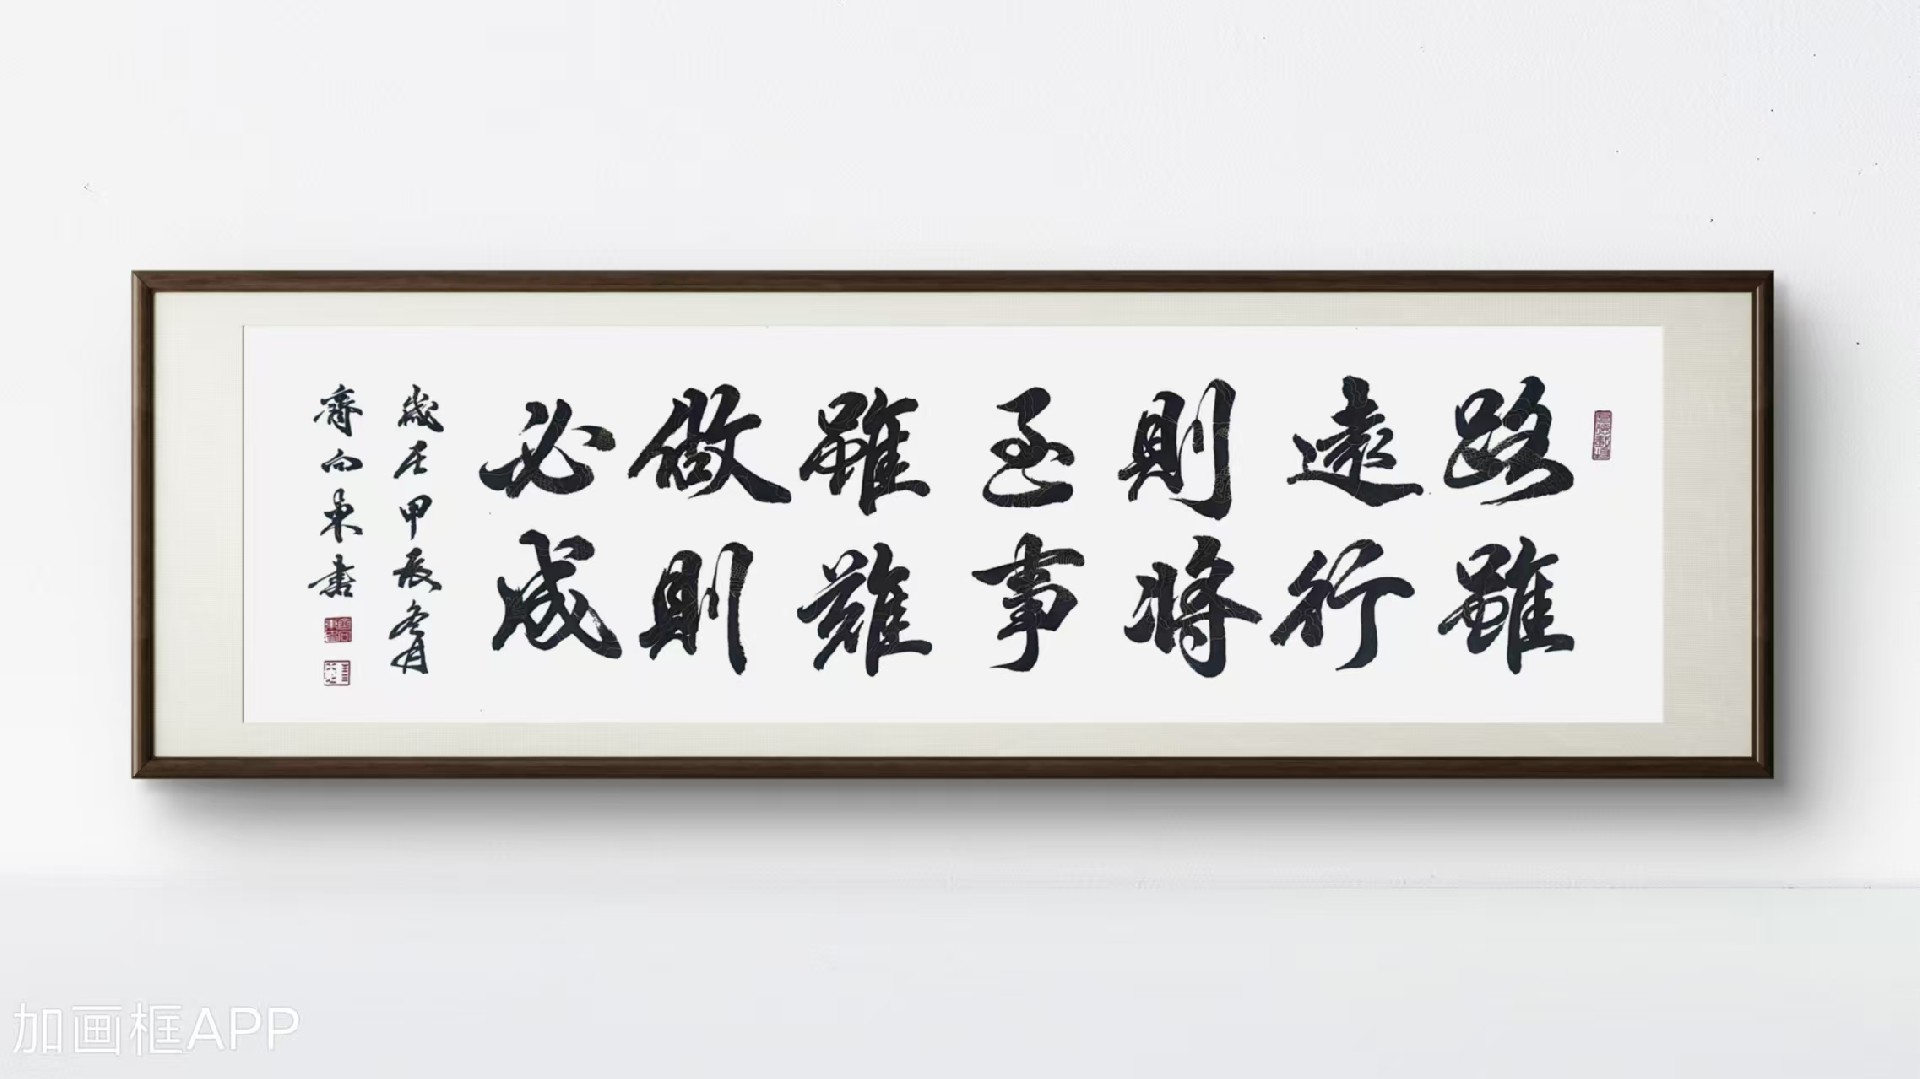 路雖
遠行
則將
至事
雖難
做則
必成
歲在甲辰冬月
齊向東書
加画框APP